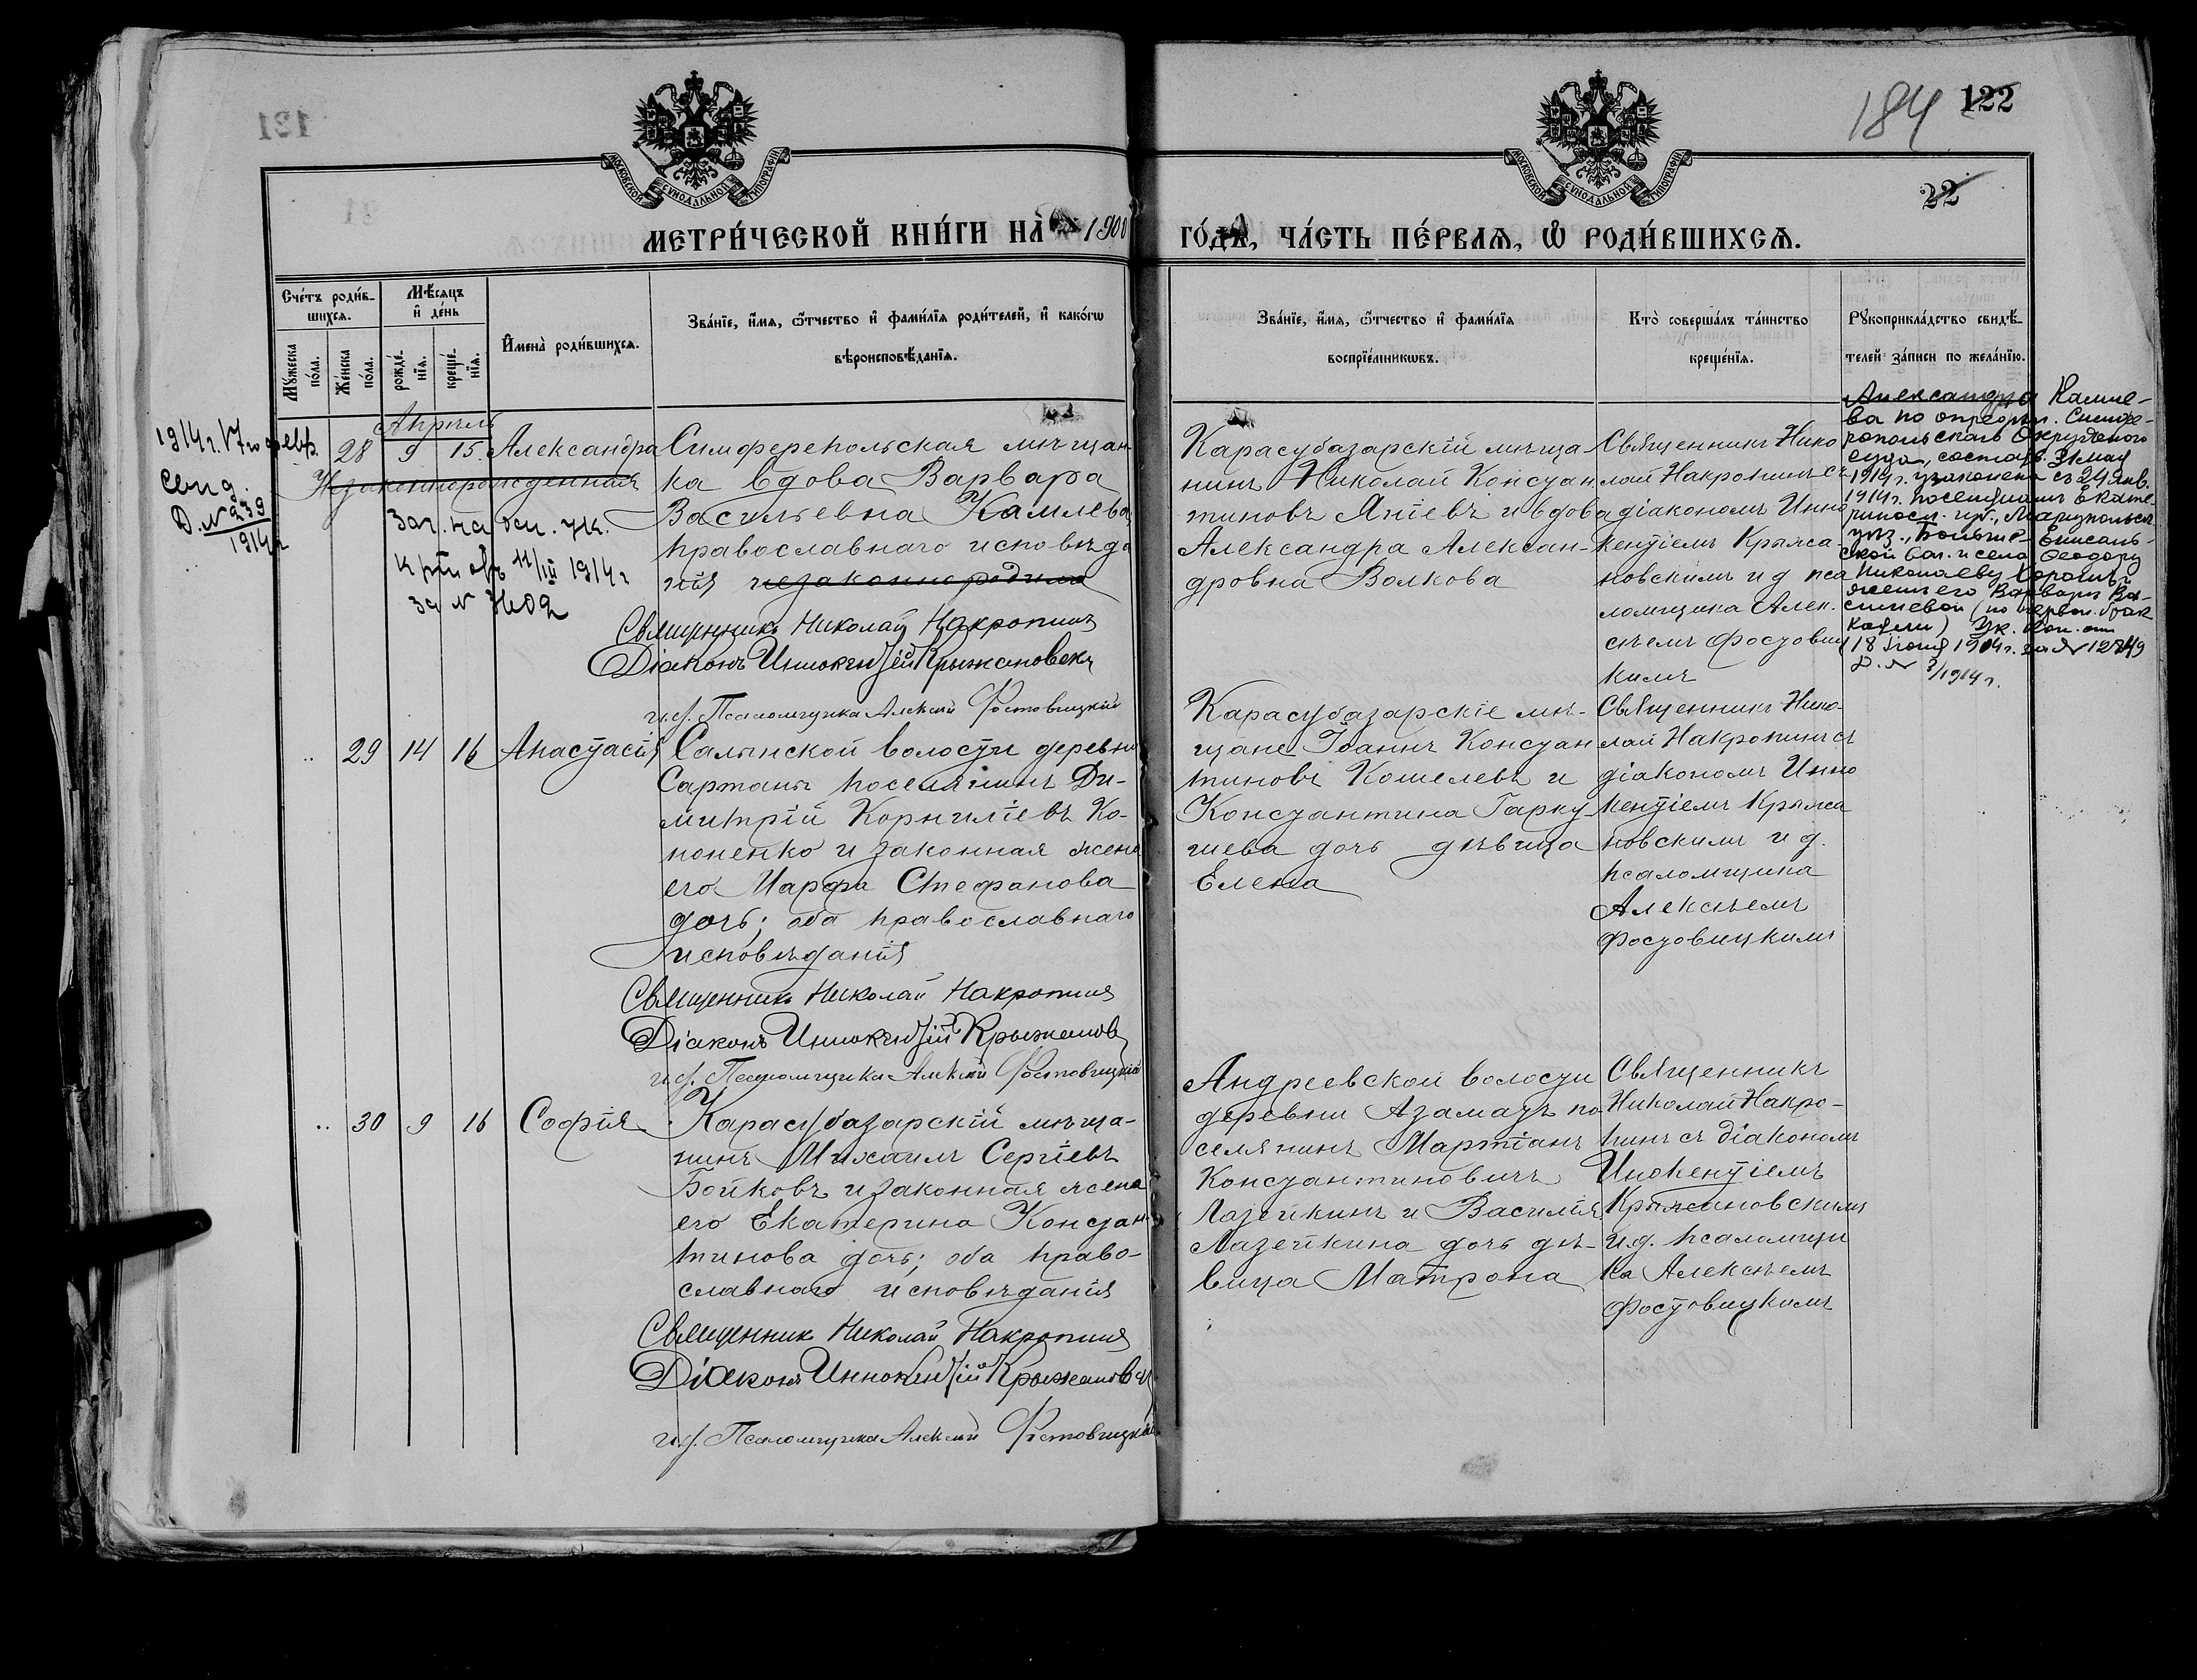 184 122
22
МОСКОВСКОЙ СѴНОДАЛЬНОЙ ТИПОГРАФІИ
МОСКОВСКОЙ СѴНОДАЛЬНОЙ ТИПОГРАФІИ
МЕТРИ́ЧЕСКОЙ КНИ́ГИ НА̀ 1900
ГО́ДЪ, ЧА́СТЬ ПЕ́РВАЯ, Ѡ РОДИ́ВШИХСЯ.
Сче́тъ роди́в-
шихся.
Мѣ́сяцъ
и де́нь
Му́жеска
по́ла.
Же́нска
по́ла.
рожде́-
нія.
креще́-
нія.
Имена̀ роди́вшихся.
Зва́ніе, и́мя, ѻ́тчество и фами́лія роди́телей, и како́гѡ
вѣроисповѣ́данія.
Зва́ніе, и́мя, ѻ́тчество и фами́лія
воспріе́мникѡвъ.
Кто̀ соверша́лъ та́инство
креще́нія.
Рꙋкоприкла́дство свидѣ́-
телей за́писи по жела́нію.
1914 г. 17го февр.
Свид.
Д. № 239
1914 г
Апрѣль
28 9 15 Александра
Незаконнорожденная
Зап. на осн. ук.
11/III 1914 г
за №
Симферопольская мѣщан-
ка вдова Варвара
Васильевна Камлева
православнаго исповѣда
нія незаконнородила
Священникъ Николай Накропинъ
Діаконъ Иннокентій Крыжановск
и.д. Псаломщика Алексій Фостовицкій
Карасубазарскій мѣща
нинъ Николай Констан
тиновъ Яніевъ и вдова
Александра Алексан-
дровна Волкова
Священникъ Нико
лай Накропинъ съ
діакономъ Инно
кентіемъ Крыжа-
новскимъ и д пса
ломщика Алек-
сѣемъ Фостовиц
кимъ
Александра Камле-
ва по опредѣл. Симфе-
ропольскаго Окружного
суда, состояв. 31 мая
1914 г. узаконена съ 24 янв.
1914 г. поселянамъ Екате-
риносл. губ., Маріупольск.
уѣз., Больше-Янисоль-
ской вол. и села Феодору
Николаеву
женѣ его Варварѣ Ва-
сильевой (по перв. брак
18 Іюня 1914 г. за № 12749
Д. № 3/1914 г.
29 14 16 Анастасія
Салынской волости деревни
Сартаны поселянинъ Ди-
митрій Корниліевъ Ко-
ноненко и законная жена
его Марфа Стефанова
дочь; оба православнаго
исповѣданія
Священникъ Николай Накропинъ
Діаконъ Иннокентій Крыжановс
и.д. Псаломщика Алексій Фостовицкій
Карасубазарскіе мѣ-
щане Іоаннъ Констан
тиновъ Кошелевъ и
Константина Гарку-
шева дочь дѣвица
Елена
Священникъ Нико-
лай Накропинъ съ
діакономъ Инно
кентіемъ Крыжа
новскимъ и д.
псаломщика
Алексѣемъ
Фостовицкимъ
30 9 16 Софія
Карасубазарскій мѣща-
нинъ Михаилъ Сергіевъ
Бойковъ и законная жена
его Екатерина Констан-
тинова дочь; оба право-
славнаго исповѣданія
Священник Николай Накропинъ
Діаконъ Иннокентій Крыжановск
и.д. Псаломщика Алексій Фостовицкій
Андреевской волости
деревни Азаматъ по
селянинъ Мартіанъ
Константиновичъ
Лазейкинъ и Василія
Лазейкина дочь дѣ-
вица Матрона
Священникъ
Николай Накро-
пинъ съ діакономъ
Инокентіемъ
Крыжановскимъ
и.д. псаломщи
ка Алексѣемъ
Фостовицкимъ